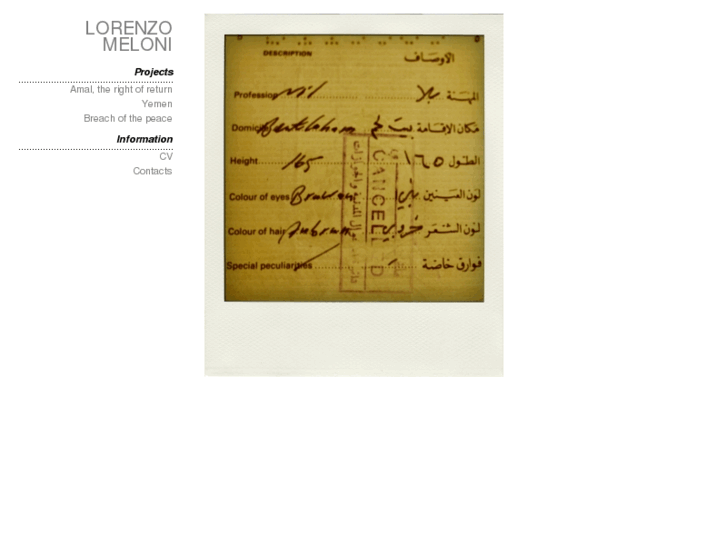 LORENZO
MELONI
Projects
Amal, the right of return
Yemen
Breach of the peace
Information
CV
Contacts
DESCRIPTION الأوصاف
Profession Nil بلا المهنة
Domicile Bethlehem بيت لحم مكان الاقامة
Height 165 ١٦٥ الطول
Colour of eyes Brown بني لون العينين
Colour of hair Auburn خروبي لون الشعر
Special peculiarities فوارق خاصة
CANCELLED